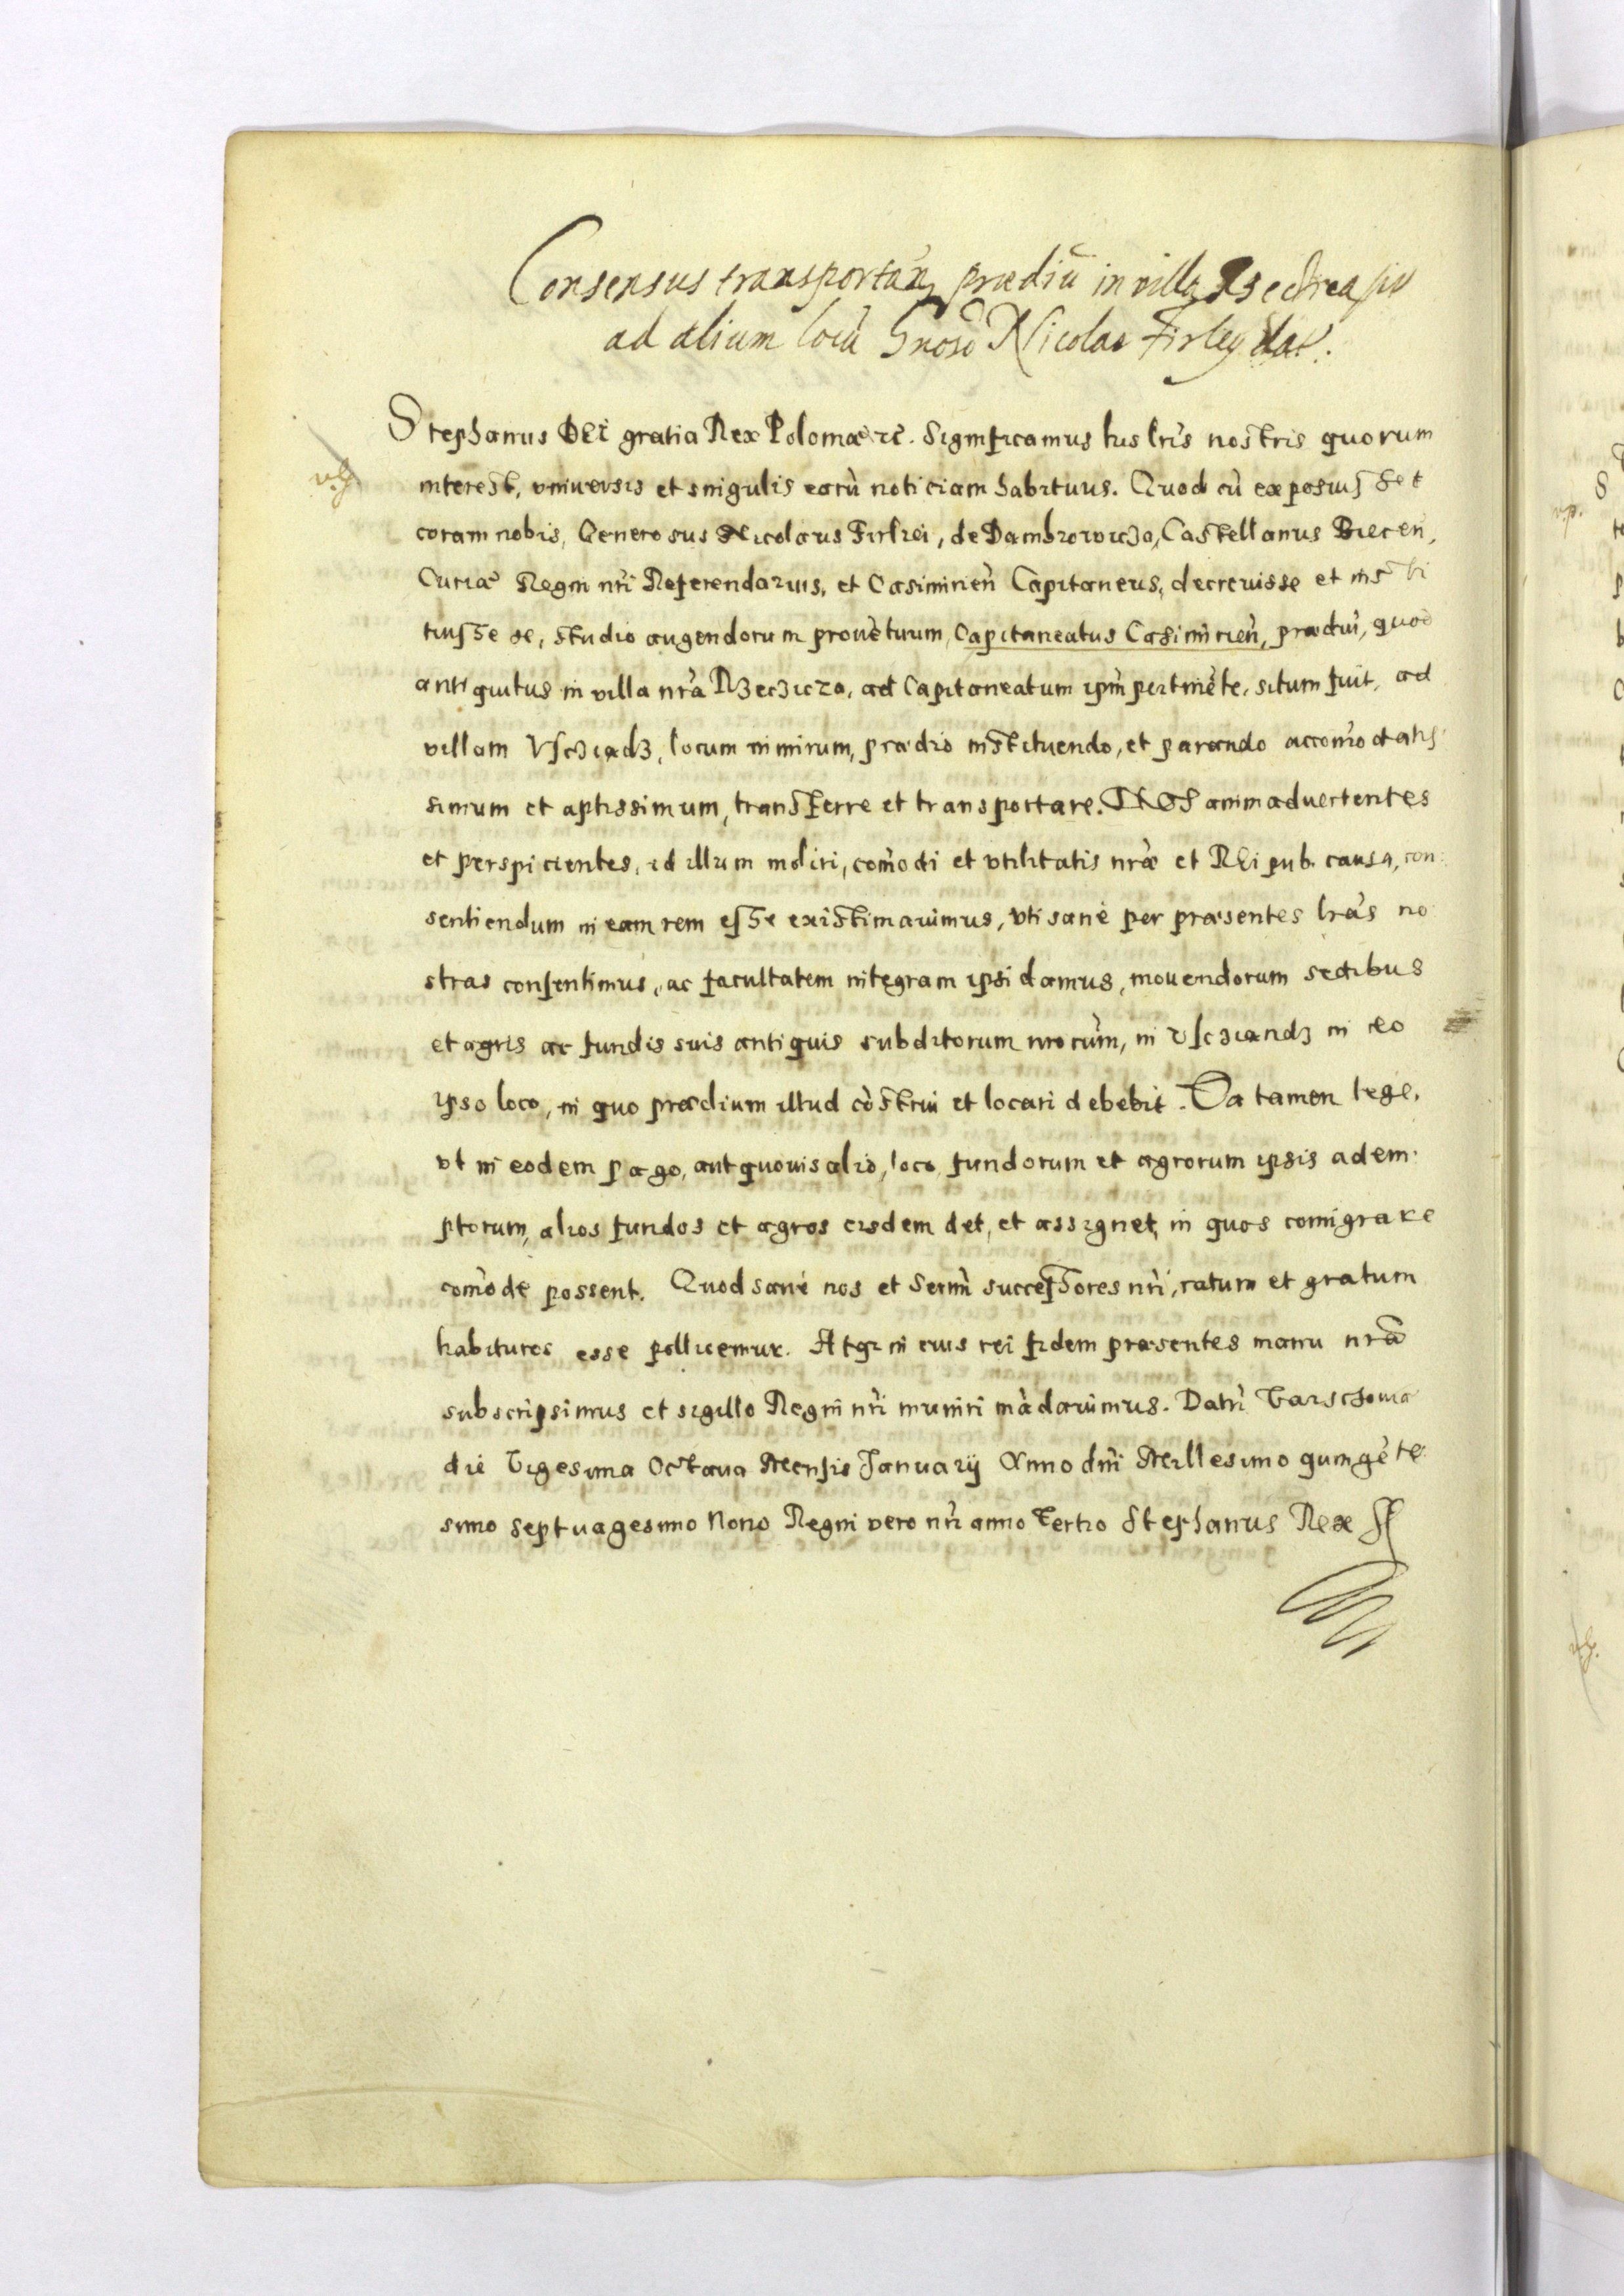 Consensus transportań prædiū in villa
ad alium locū Gnosō Nicolao Firley dat.
Stephanus DEI gratia Rex Poloniæ etc. Significamus his lr̃is nostris quorum
interest, vniuersis et singulis earū noticiam habituris. Quod cū exposuisset
coram nobis, Generosus Nicolaus Firlei, de Dambrowicza, Castellanus Biecen,
Curiæ Regni nr̃i Referendarius, et Casimirień Capitaneus, decreuisse et insti
tuisse se, studio augendorum prouētuum, Capitaneatus Casimirień, prædiū, quod
antiquitus in villa nr̃a Rzeczicza, ad Capitaneatum ipm̃ pertinēte, situm fuit, ad
villam Vscziądz, locum nimirum, prædio instituendo, et parando accom̃odatis
simum et aptissimum, transferre et transportare. NOS animaduertentes
et perspicientes, id illum moliri, com̃odi et vtilitatis nr̃æ et REipub. causa, con:
sentiendum in eam rem esse existimauimus, vti sanè per præsentes lr̃as no
stras consentimus, ac facultatem integram ipsi damus, mouendorum sedibus
et agris ac fundis suis antiquis subditorum nrorūm, in Vscziandz in eo
ipso loco, in quo prædium illud cōstrui et locari debebit. Ea tamen lege,
vt in eodem pago, aut quouis alio, loco fundorum et agrorum ipsis adem:
ptorum, alios fundos et agros eisdem det, et assignet, in quos comigrare
com̃ode possent. Quod sanè nos et Serm̃i successores nr̃i, ratum et gratum
habituros esse pollicemur. Atq3 in eius rei fidem præsentes manu nrã
subscripsimus et sigillo Regni nr̃i muniri mādauimus. Datm̃ Varschouiæ
die Vigesima Octaua Mensis Januarij Anno dn̄i Millesimo quingēte
simo septuagesimo Nono Regni vero nr̃i anno Tertio Stephanus Rex